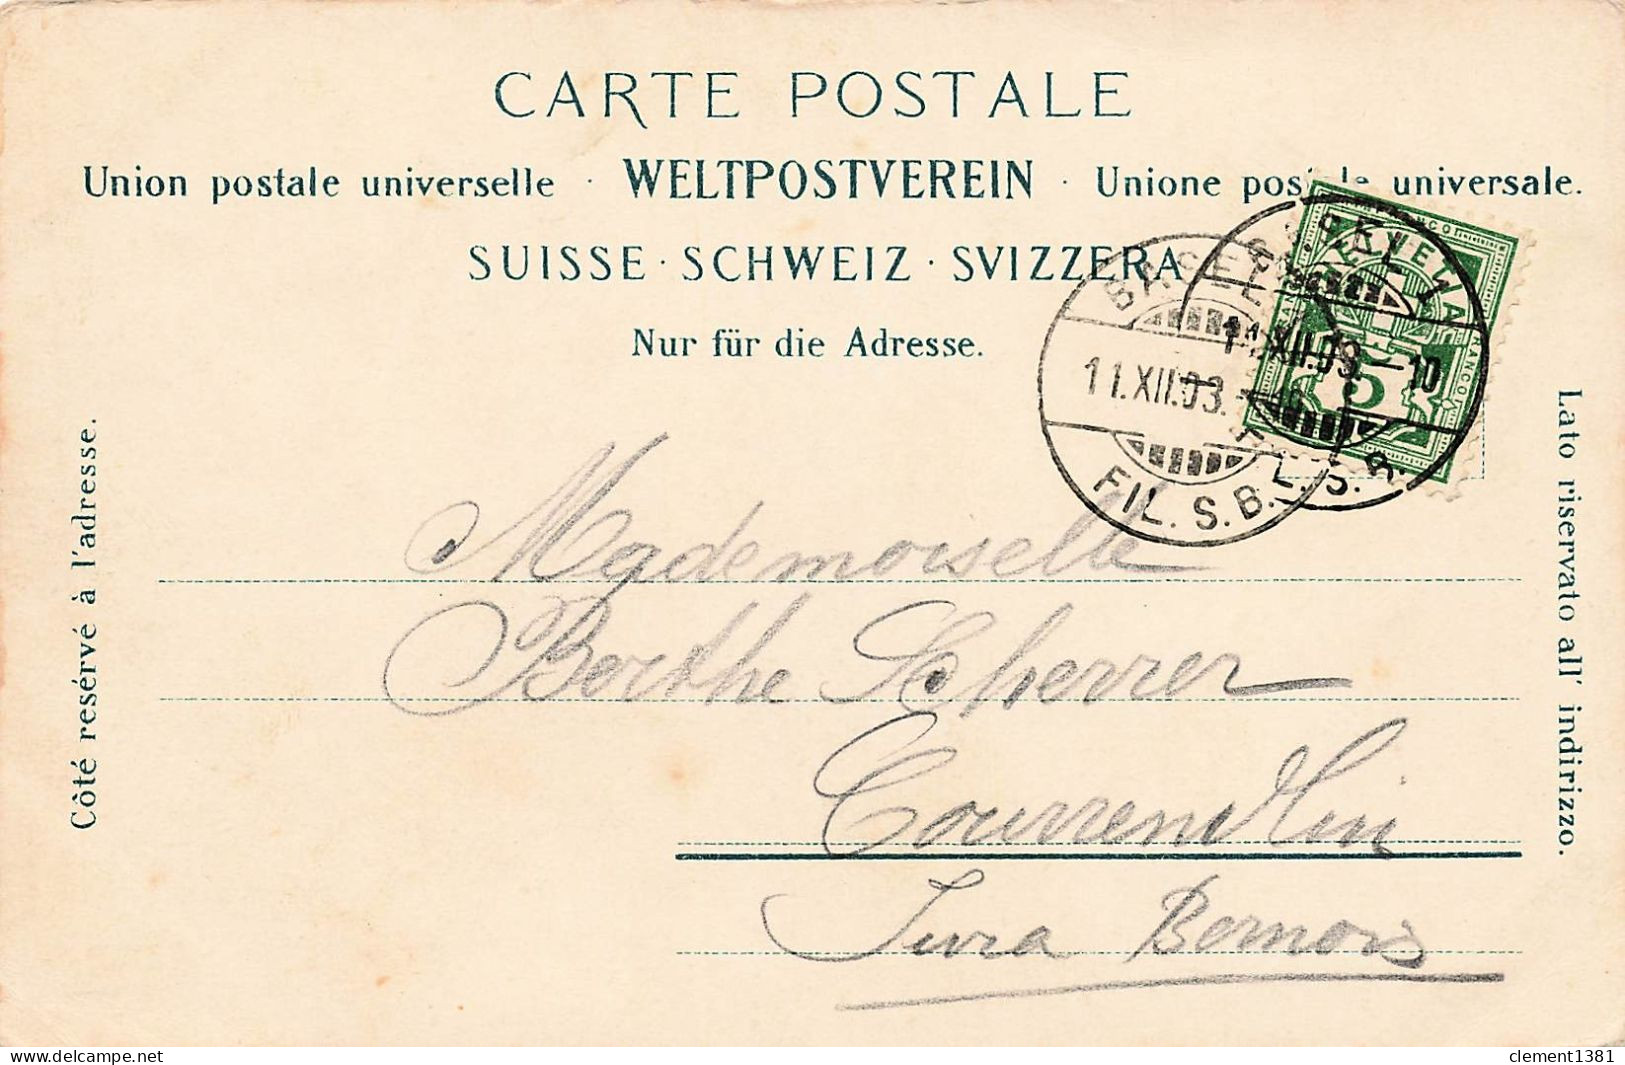 CARTE POSTALE
Union postale universelle · WELTPOSTVEREIN · Unione postale universale.
SUISSE · SCHWEIZ · SVIZZERA
Nur für die Adresse.
Côté resérvé à l'adresse.
Lato riservato all' indirizzo.
BASEL
11.XII.03.
FIL. S.B.
11.XII.03.–10
L. S. B.
HELVETIA
FRANCO
5
Mademoiselle
Berthe Scherrer
Courrendlin
Jura Bernois
clement1381